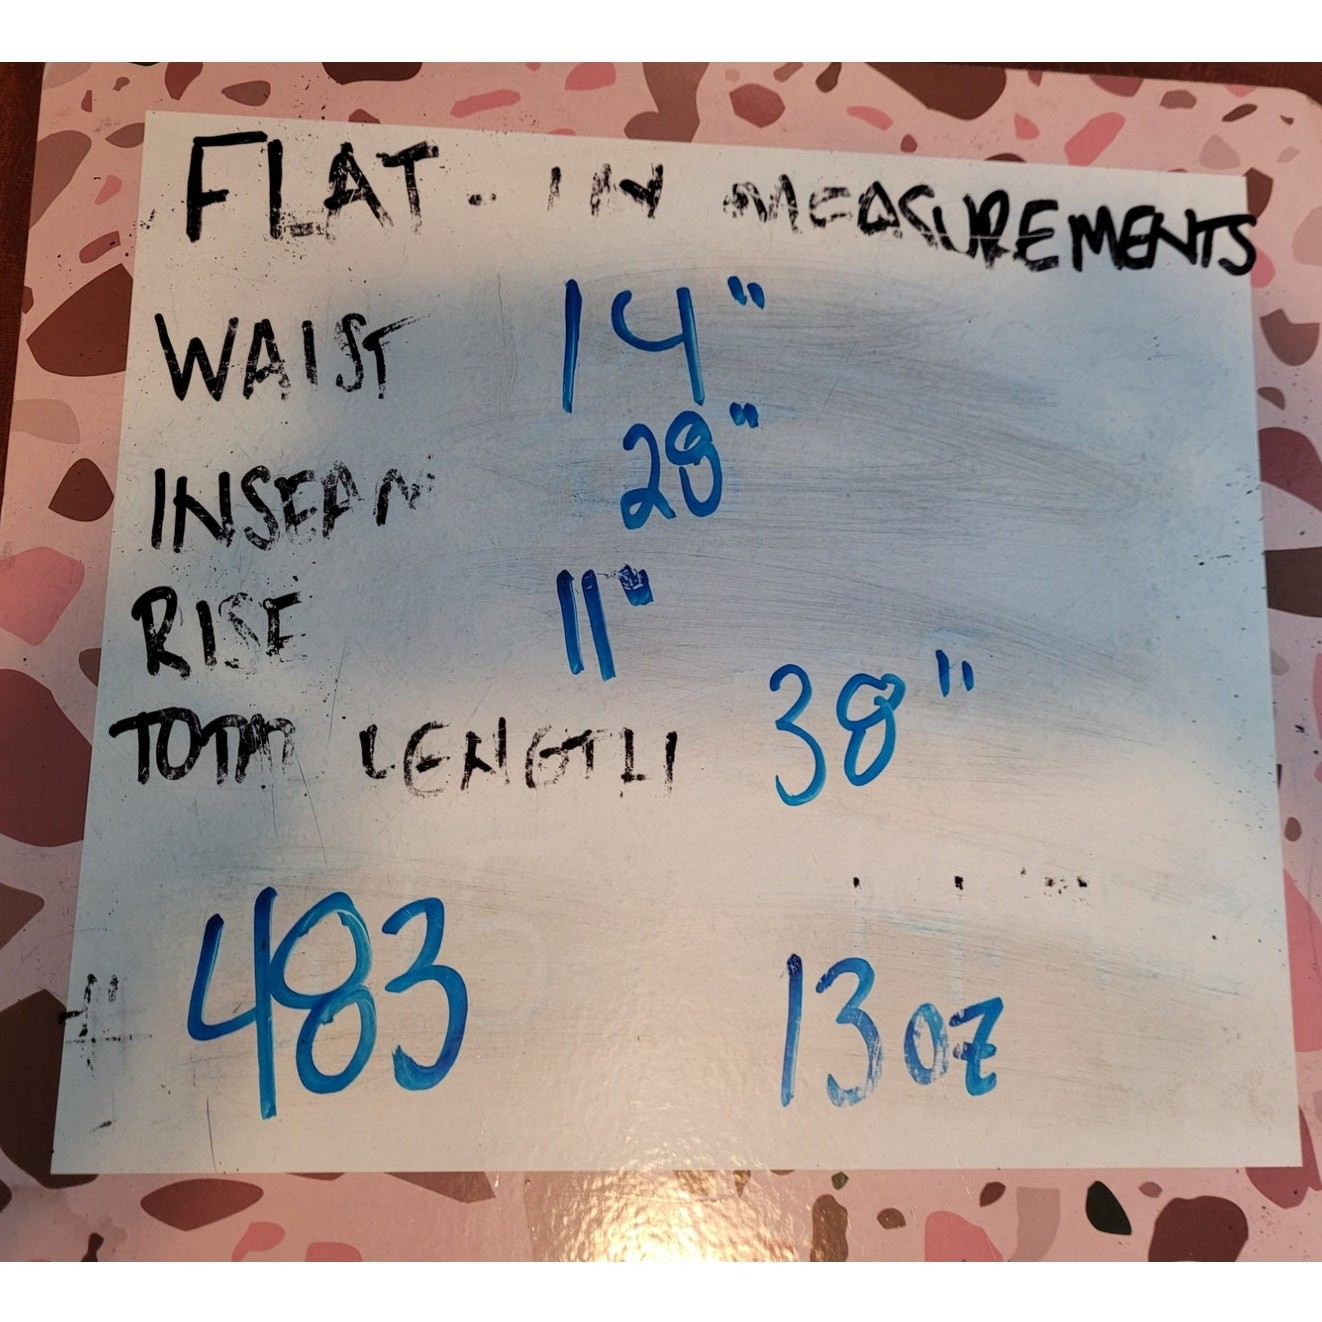 FLAT - IN MEASUREMENTS
WAIST 14"
INSEAM 28"
RISE 11"
TOTAL LENGTH 38"
# 483 13 oz